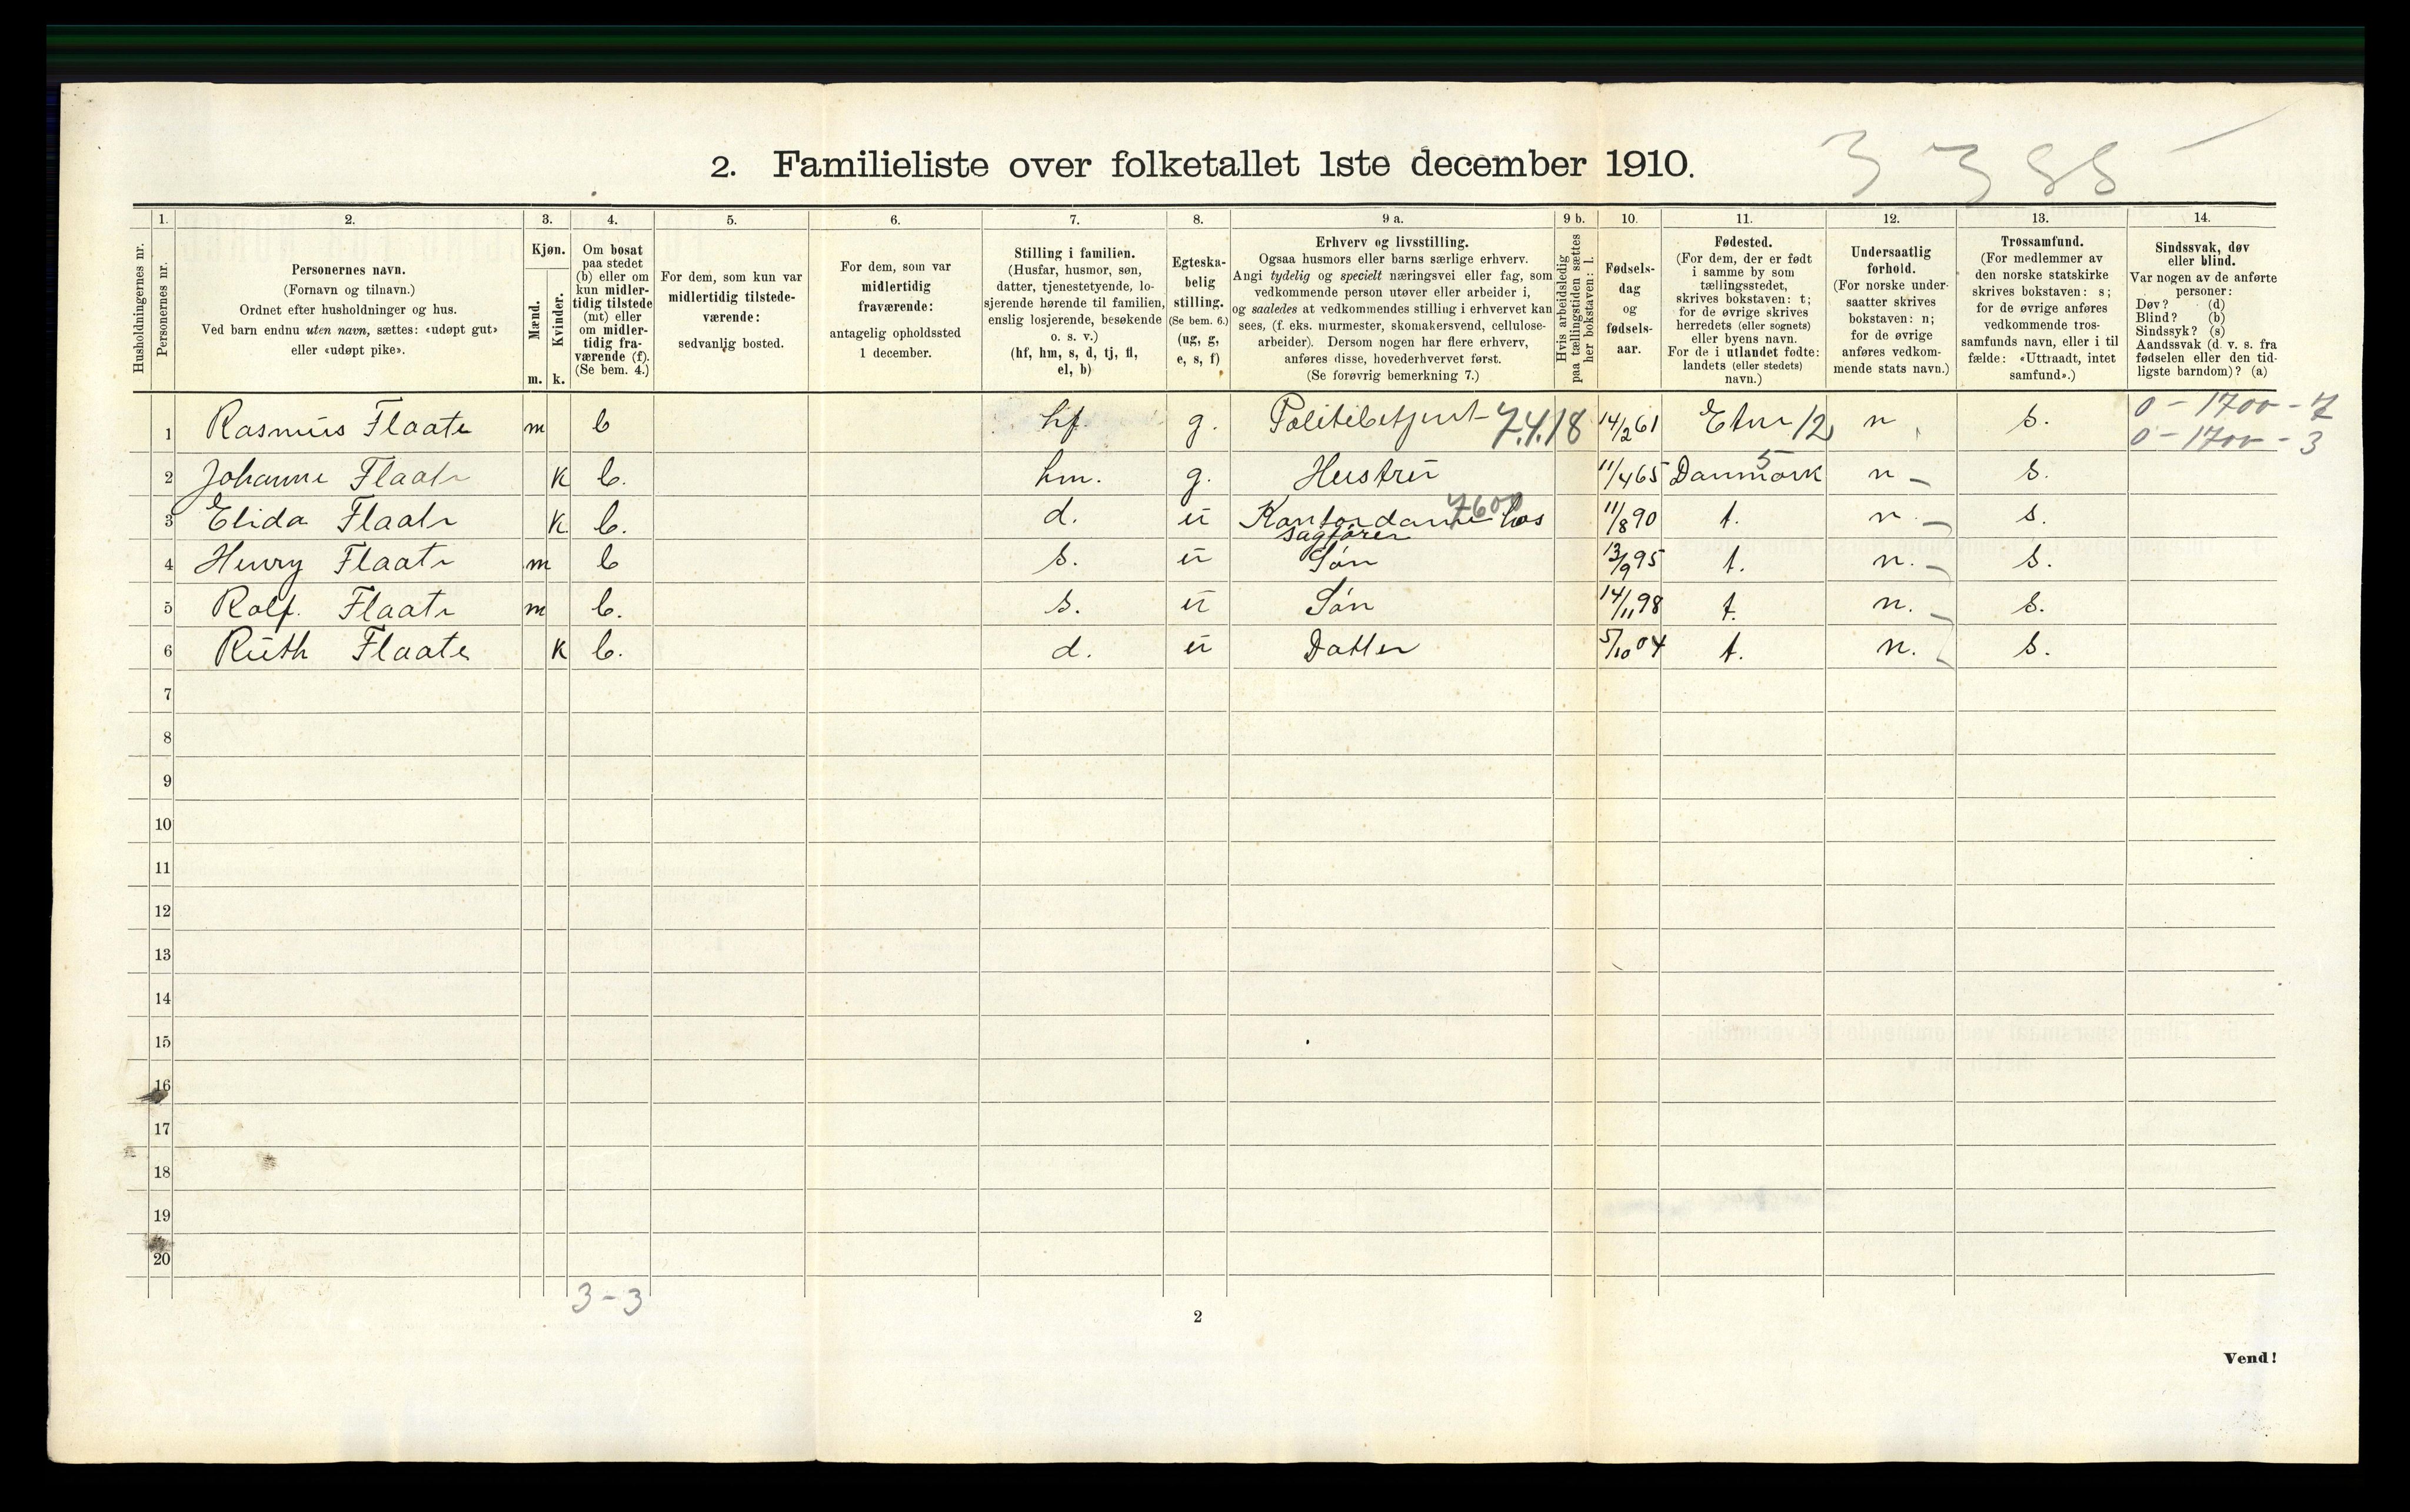 3388
2. Familieliste over folketallet 1ste december 1910.
Husholdningernes nr.
1.
Personernes nr.
2.
Personernes navn.
(Fornavn og tilnavn.)
Ordnet efter husholdninger og hus.
Ved barn endnu uten navn, sættes: «udøpt gut»
eller «udøpt pike».
3.
Kjøn.
Mænd.
Kvinder.
m. k.
4.
Om bosat
paa stedet
(b) eller om
kun midler-
tidig tilstede
(mt) eller
om midler-
tidig fra-
værende (f).
(Se bem. 4.)
5.
For dem, som kun var
midlertidig tilstede-
værende:
sedvanlig bosted.
6.
For dem, som var
midlertidig
fraværende:
antagelig opholdssted
1 december.
7.
Stilling i familien.
(Husfar, husmor, søn,
datter, tjenestetyende, lo-
sjerende hørende til familien,
enslig losjerende, besøkende
o. s. v.)
(hf, hm, s, d, tj, fl,
el, b)
8.
Egteska-
belig
stilling.
(Se bem. 6.)
(ug, g,
e, s, f)
9 a.
Erhverv og livsstilling.
Ogsaa husmors eller barns særlige erhverv.
Angi tydelig og specielt næringsvei eller fag, som
vedkommende person utøver eller arbeider i,
og saaledes at vedkommendes stilling i erhvervet kan
sees, (f. eks. murmester, skomakersvend, cellulose-
arbeider). Dersom nogen har flere erhverv,
anføres disse, hovederhvervet først.
(Se forøvrig bemerkning 7.)
9 b.
Hvis arbeidsledig
paa tællingstiden sættes
her bokstaven: l.
10.
Fødsels-
dag
og
fødsels-
aar.
11.
Fødested.
(For dem, der er født
i samme by som
tællingsstedet,
skrives bokstaven: t;
for de øvrige skrives
herredets (eller sognets)
eller byens navn.
For de i utlandet fødte:
landets (eller stedets)
navn.)
12.
Undersaatlig
forhold.
(For norske under-
saatter skrives
bokstaven: n;
for de øvrige
anføres vedkom-
mende stats navn.)
13.
Trossamfund.
(For medlemmer av
den norske statskirke
skrives bokstaven: s;
for de øvrige anføres
vedkommende tros-
samfunds navn, eller i til
fælde: «Uttraadt, intet
samfund».)
14.
Sindssvak, døv
eller blind.
Var nogen av de anførte
personer:
Døv? (d)
Blind? (b)
Sindssyk? (s)
Aandssvak (d. v. s. fra
fødselen eller den tid-
ligste barndom)? (a)
1 Rasmus Flaate m b hf. g. Politibetjent 7.4.18 14/2 61 Etne 12 n s. 0-1700-7
0-1700-3
2 Johanne Flaate k b. hm. g. Hustru 11/4 65 Danmark 5 n s.
3 Elida Flaate k. b. d. u Kontordame hos 7600 11/8 90 t. n. s.
sagfører
4 Henry Flaate m b s. u Søn 13/9 95 t. n. s.
5 Rolf. Flaate m b. s. u Søn 14/11 98 t. n. s.
6 Ruth Flaate k b. d. u Datter 5/10 04 t. n. s.
7
8
9
10
11
12
13
14
15
16
17
18
19
20
3-3
2
Vend!